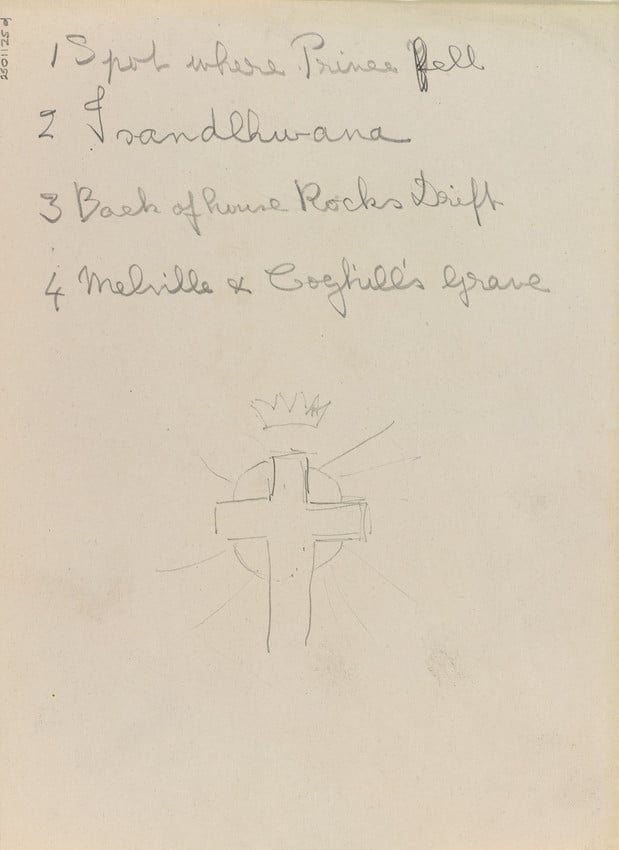 1 Spot where Prince fell
2 Isandlhwana
3 Back of house Rocks Drift
4 Melville & Coghill's Grave
250112 5 d